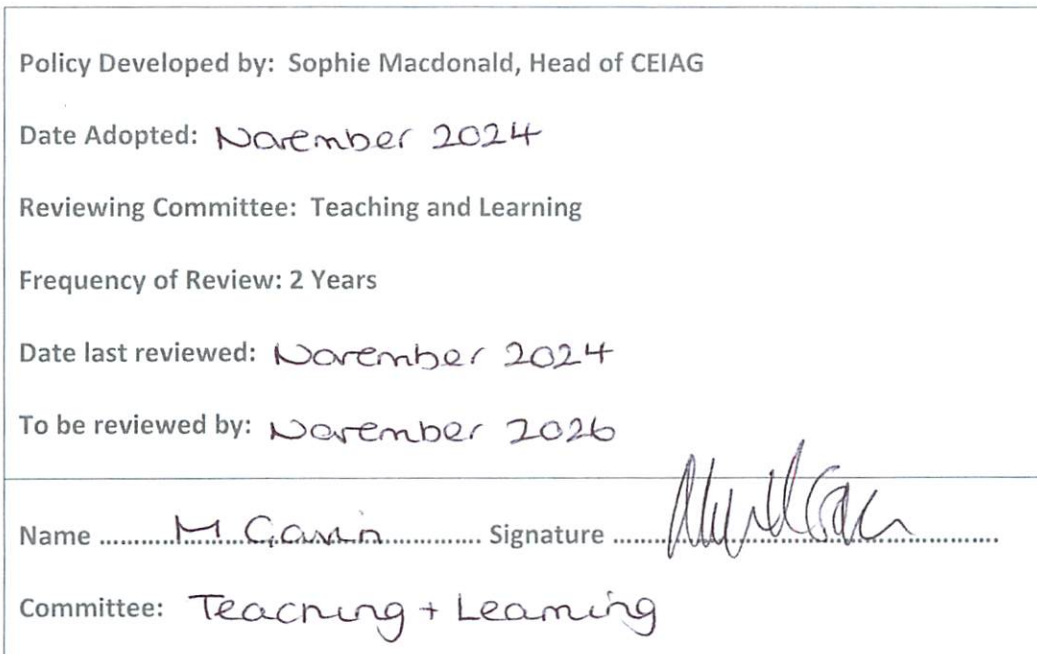 Policy Developed by: Sophie Macdonald, Head of CEIAG
Date Adopted: November 2024
Reviewing Committee: Teaching and Learning
Frequency of Review: 2 Years
Date last reviewed: November 2024
To be reviewed by: November 2026
Name ............M Gavin............... Signature ........................................
Committee: Teaching + Learning